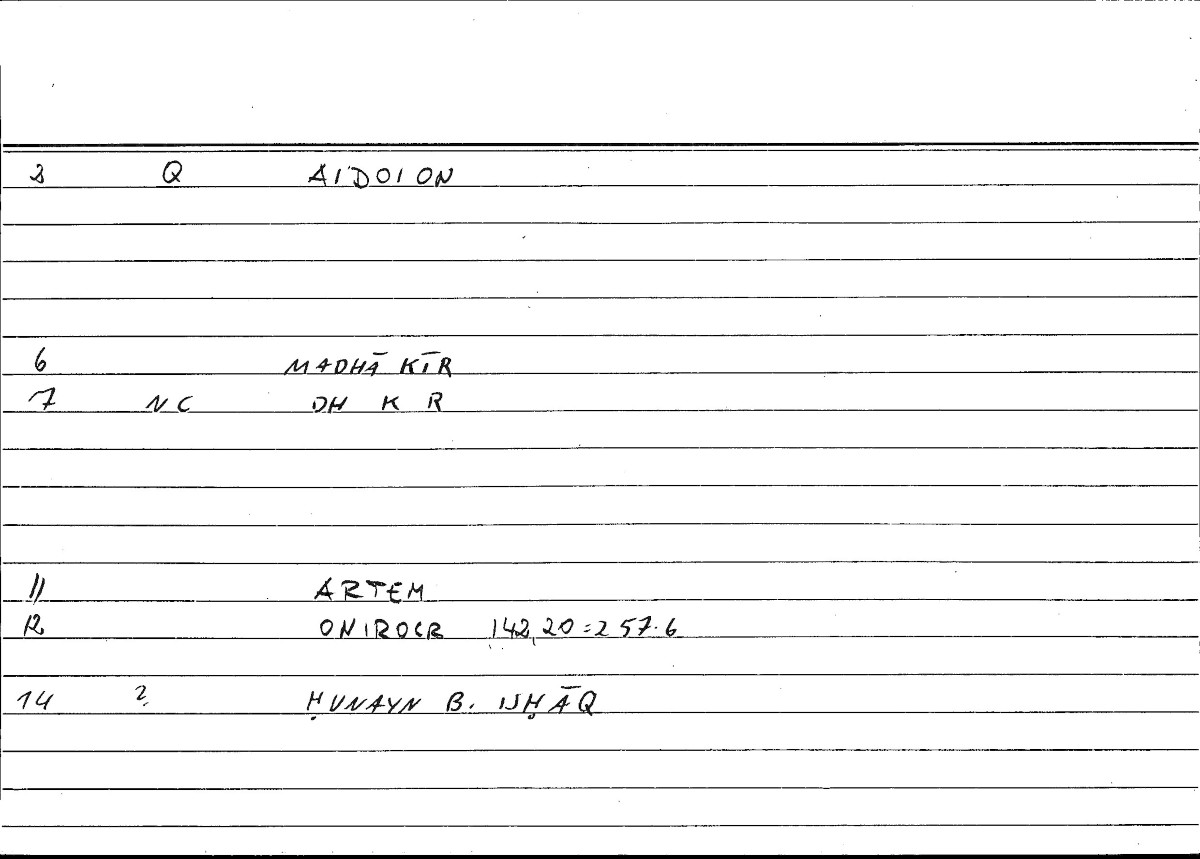 2 Q AIDOION
6 MADHĀKĪR
7 NC DH K R
11 ARTEM
12 ONIROCR 142,20=257.6
14 ? ḤUNAYN B. ISḤĀQ